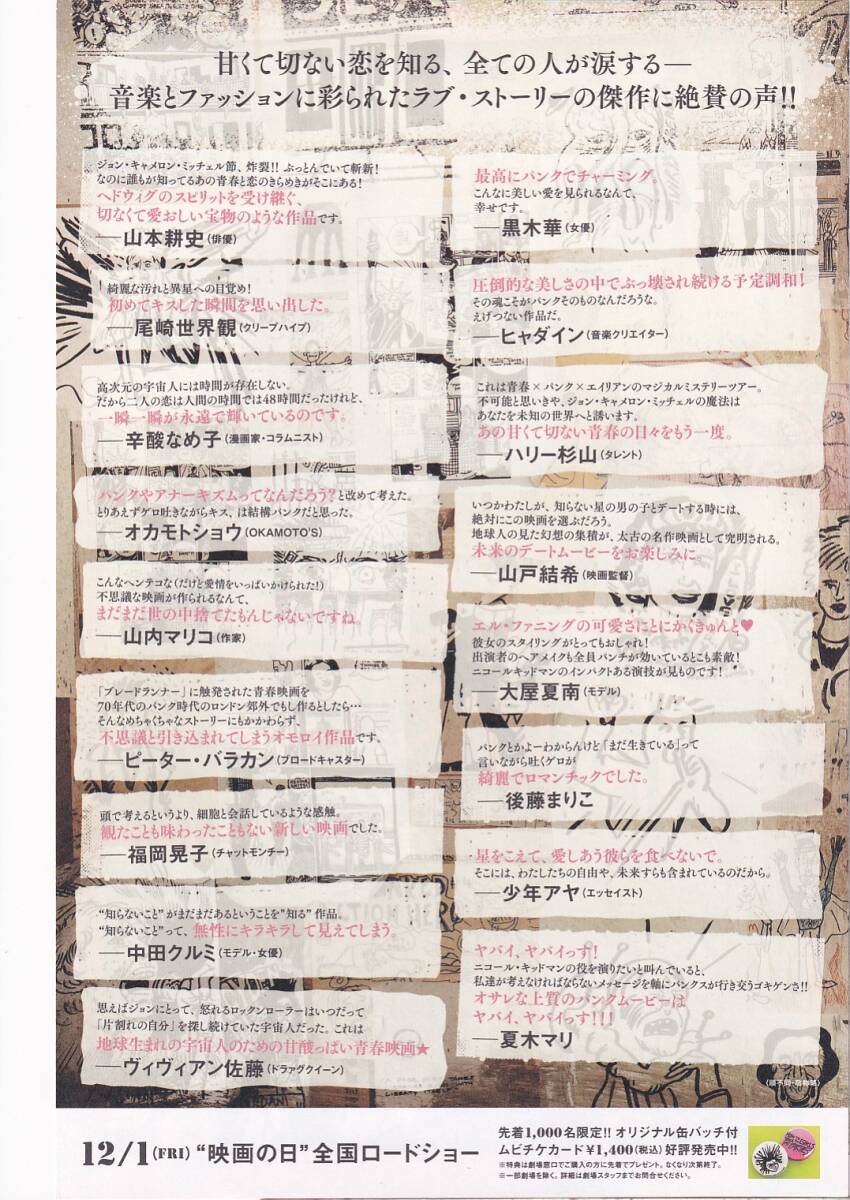 甘くて切ない恋を知る、全ての人が涙する―
音楽とファッションに彩られたラブ・ストーリーの傑作に絶賛の声!!
ジョン・キャメロン・ミッチェル節、炸裂!! ぶっとんでいて斬新!
なのに誰もが知ってるあの青春と恋のきらめきがそこにある!
ヘドウィグのスピリットを受け継ぐ、
切なくて愛おしい宝物のような作品です。
――山本耕史(俳優)
綺麗な汚れと異星への目覚め!
初めてキスした瞬間を思い出した。
――尾崎世界観(クリープハイプ)
高次元の宇宙人には時間が存在しない。
だから二人の恋は人間の時間では48時間だったけれど、
一瞬一瞬が永遠で輝いているのです。
――辛酸なめ子(漫画家・コラムニスト)
パンクやアナーキズムってなんだろう?と改めて考えた。
とりあえずゲロ吐きながらキス、は結構パンクだと思った。
――オカモトショウ(OKAMOTO'S)
こんなヘンテコな(だけど愛情をいっぱいかけられた!)
不思議な映画が作られるなんて、
まだまだ世の中捨てたもんじゃないですね。
――山内マリコ(作家)
「ブレードランナー」に触発された青春映画を
70年代のパンク時代のロンドン郊外でもし作るとしたら…
そんなめちゃくちゃなストーリーにもかかわらず、
不思議と引き込まれてしまうオモロイ作品です。
――ピーター・バラカン(ブロードキャスター)
頭で考えるというより、細胞と会話しているような感触。
観たことも味わったこともない新しい映画でした。
――福岡晃子(チャットモンチー)
“知らないこと”がまだまだあるということを"知る"作品。
“知らないこと”って、無性にキラキラして見えてしまう。
――中田クルミ(モデル・女優)
思えばジョンにとって、怒れるロックンローラーはいつだって
「片割れの自分」を探し続けていた宇宙人だった。これは
地球生まれの宇宙人のための甘酸っぱい青春映画★
――ヴィヴィアン佐藤(ドラァグクイーン)
最高にパンクでチャーミング。
こんなに美しい愛を見られるなんて、
幸せです。
――黒木華(女優)
圧倒的な美しさの中でぶっ壊され続ける予定調和!
その魂こそがパンクそのものなんだろうな。
えげつない作品だ。
――ヒャダイン(音楽クリエイター)
これは青春×パンク×エイリアンのマジカルミステリーツアー。
不可能と思いきや、ジョン・キャメロン・ミッチェルの魔法は
あなたを未知の世界へと誘います。
あの甘くて切ない青春の日々をもう一度。
――ハリー杉山(タレント)
いつかわたしが、知らない星の男の子とデートする時には、
絶対にこの映画を選ぶだろう。
地球人の見た幻想の集積が、太古の名作映画として究明される。
未来のデートムービーをお楽しみに。
――山戸結希(映画監督)
エル・ファニングの可愛さにとにかくきゅんと♥
彼女のスタイリングがとってもおしゃれ!
出演者のヘアメイクも全員パンチが効いているとこも素敵!
ニコールキッドマンのインパクトある演技が見ものです!
――大屋夏南(モデル)
パンクとかよーわからんけど「まだ生きている」って
言いながら吐くゲロが
綺麗でロマンチックでした。
――後藤まりこ
星をこえて、愛しあう彼らを食べないで。
そこには、わたしたちの自由や、未来すらも含まれているのだから。
――少年アヤ(エッセイスト)
ヤバイ、ヤバイっす!
ニコール・キッドマンの役を演りたいと叫んでいると、
私達が考えなければならないメッセージを軸にパンクスが行き交うゴキゲンさ!!
オサレな上質のパンクムービーは
ヤバイ、ヤバイっす!!!
――夏木マリ
(順不同・敬称略)
12/1(FRI) “映画の日”全国ロードショー
先着1,000名限定!! オリジナル缶バッチ付
ムビチケカード¥1,400(税込)好評発売中!!
※特典は劇場窓口でご購入の方に先着でプレゼント。なくなり次第終了。
※一部劇場を除く。詳細は劇場スタッフまでお問合せください。